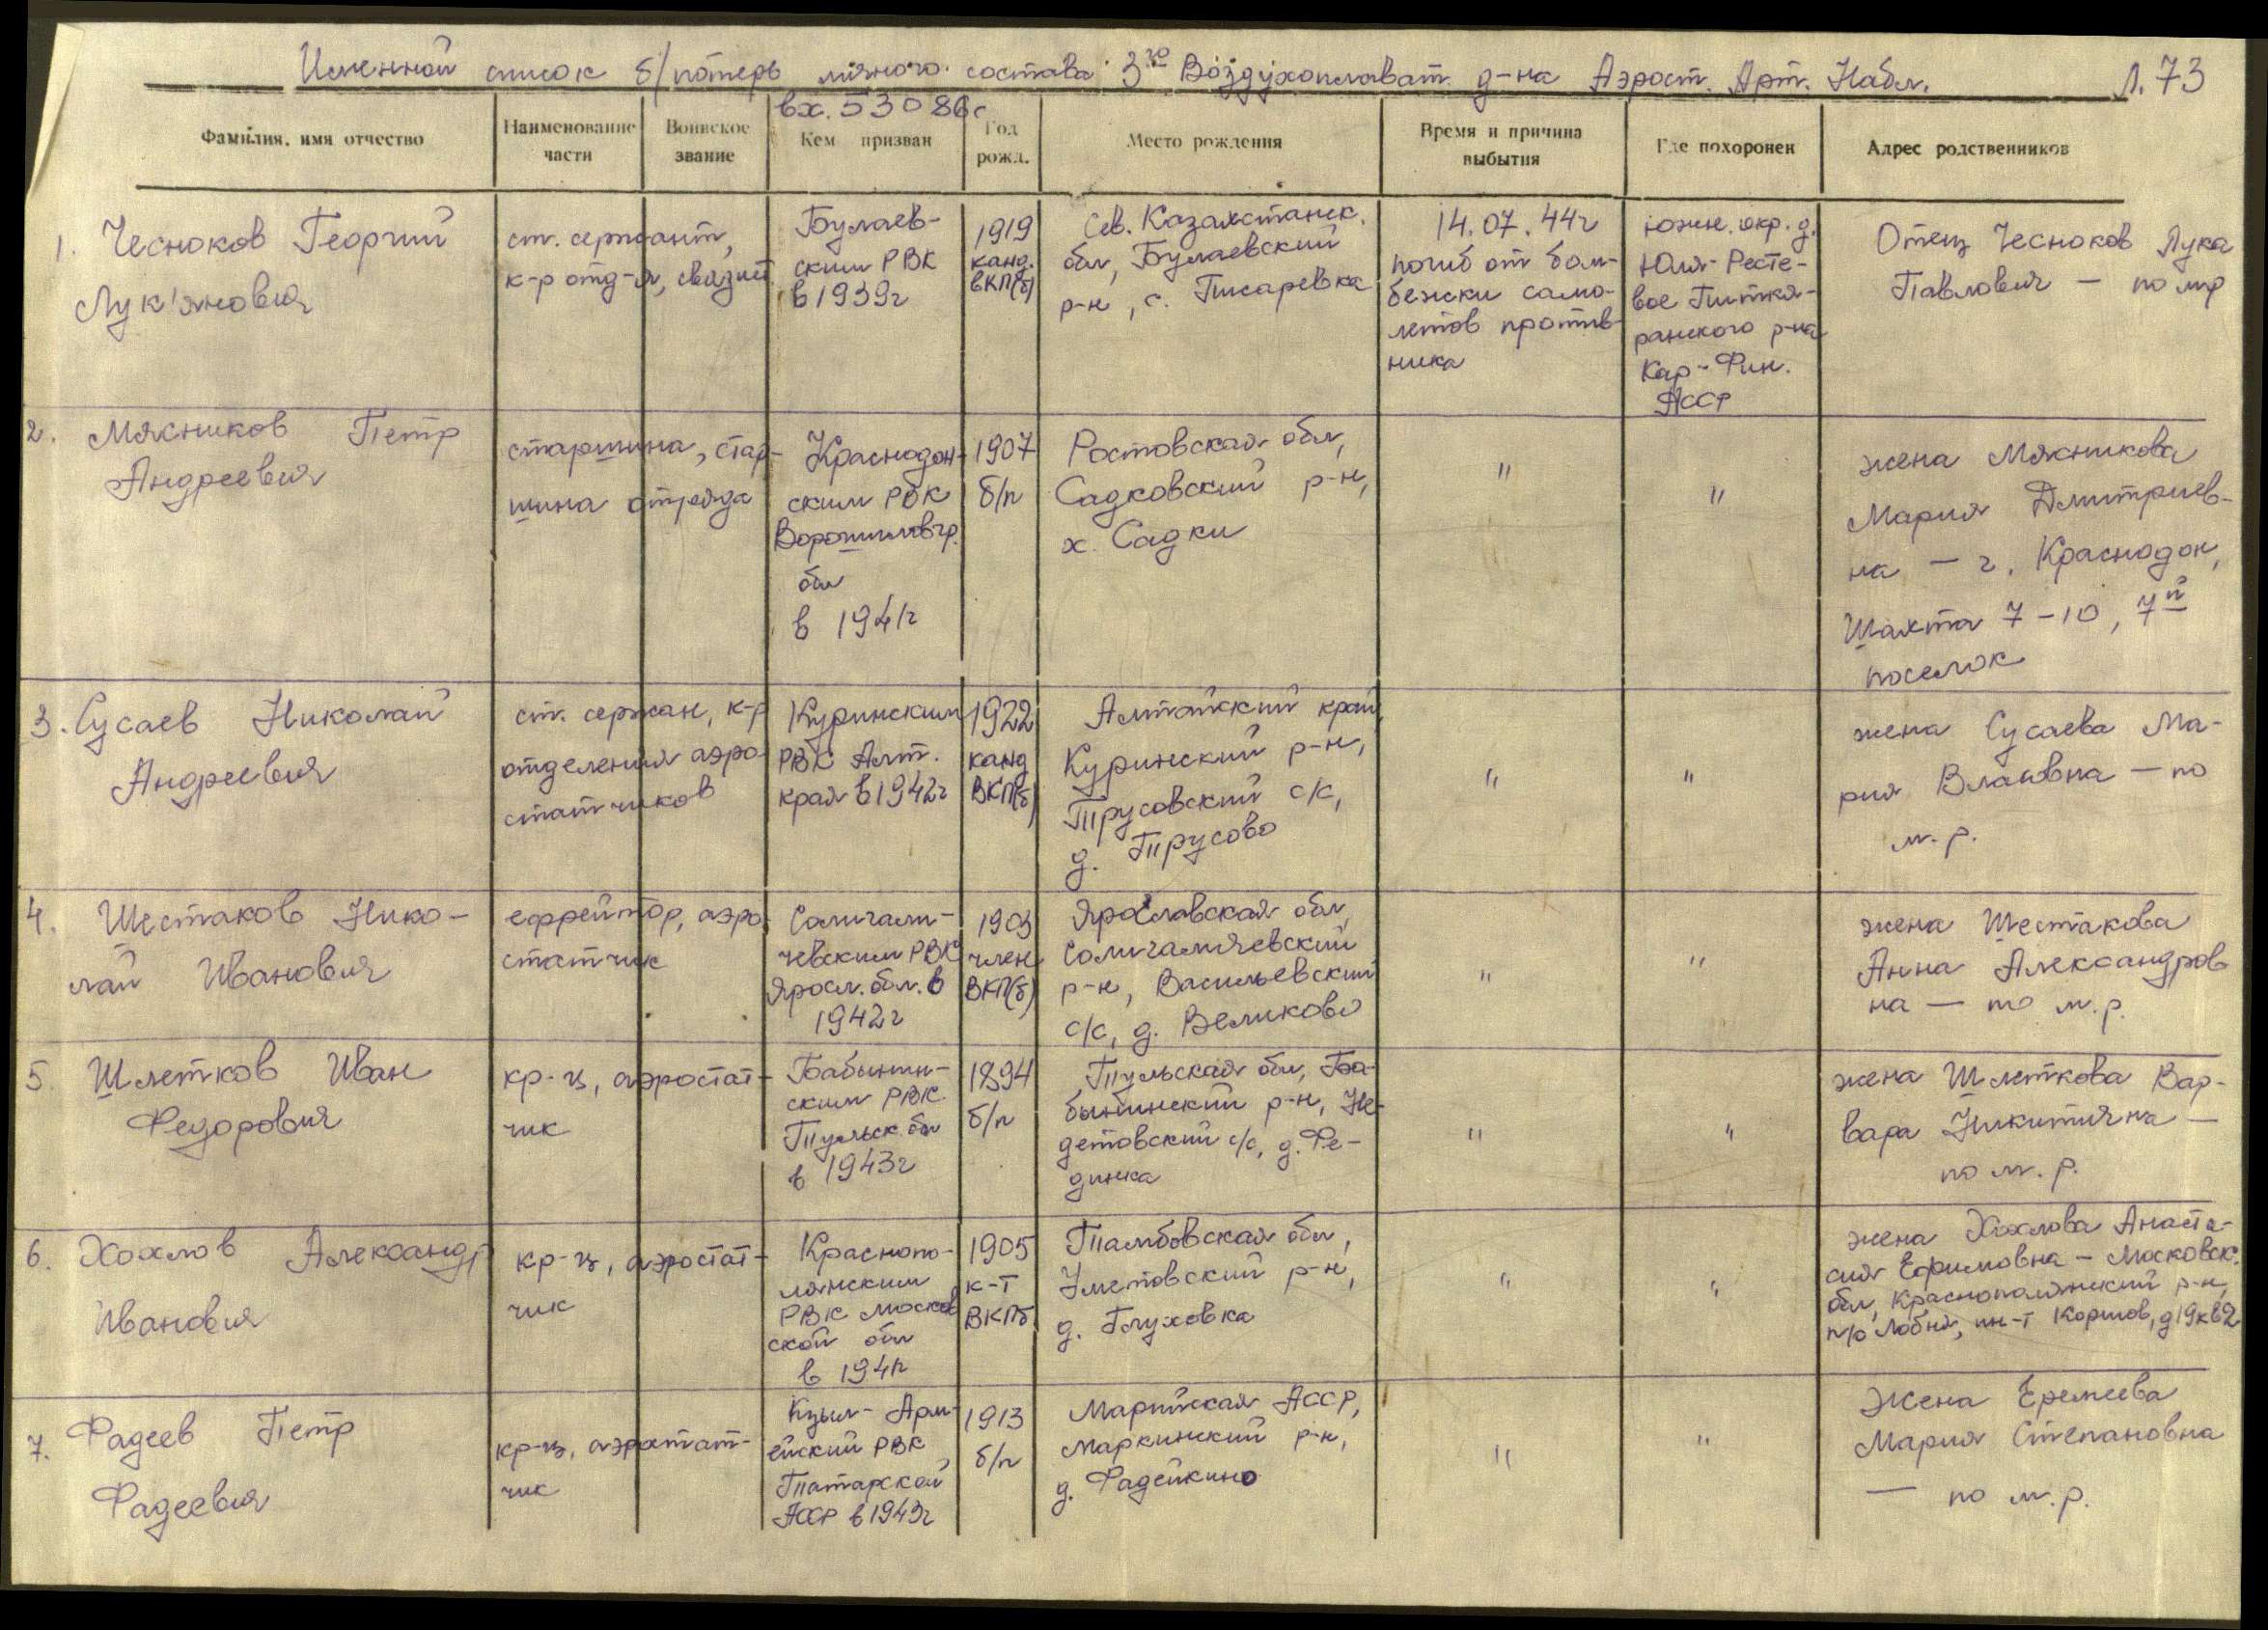 Именной список б/потерь личного состава 3го Воздухоплават. д-на Аэрост. Арт. Набл. Л. 73
вх. 53086с
Фамилия, имя отчество
Наименование
части
Воинское
звание
Кем призван
Год
рожд.
Место рождения
Время и причина
выбытия
Где похоронен
Адрес родственников
1. Чесноков Георгий
Лук'янович
ст. сержант,
к-р отд-я, связист
Булаев-
ским РВК
в 1939г
1919
канд.
ВКП(б)
Сев. Казахстанск.
обл, Булаевский
р-н, с. Писаревка
14.07.44г
погиб от бом-
бежки само-
летов против-
ника
южн. окр. д.
Юля-Ресте-
вое Питкя-
ранского р-на
Кар-Фин.
АССР
Отец Чесноков Лука
Павлович — по мр
2. Мякников Петр
Андреевич
старшина, стар-
шина отряда
Краснодон-
ским РВК
Ворошиловгр.
обл
в 1941г
1907
б/п
Ростовская обл,
Садковский р-н,
х. Садки
"
"
жена Мякникова
Мария Дмитриев-
на — г. Краснодон,
Шахта 7-10, 7й
поселок
3. Сусаев Николай
Андреевич
ст. сержан, к-р
отделения аэро-
статчиков
Куринским
РВК Алт.
края в 1942г
1922
канд
ВКП(б)
Алтайский край,
Куринский р-н,
Трусовский с/с,
д. Трусово
"
"
жена Сусаева Ма-
рия Власовна — по
м.р.
4. Шестаков Нико-
лай Иванович
ефрейтор, аэро-
статчик
Солигали-
чевским РВК
Яросл. обл. в
1942г
1903
член
ВКП(б)
Ярославская обл,
Солигаличевский
р-н, Васильевский
с/с, д. Великово
"
"
жена Шестакова
Анна Александров
на — по м.р.
5. Шлетков Иван
Федорович
кр-ц, аэростат-
чик
Бабынин-
ским РВК
Тульск. обл
в 1943г
1894
б/п
Тульская обл, Ба-
бынинский р-н, Не-
детовский с/с, д. Фе-
динка
"
"
жена Шлеткова Вар-
вара Никитична —
по м.р.
6. Хохлов Александр
Иванович
кр-ц, аэростат-
чик
Краснопо-
лянским
РВК Москов
ской обл
в 1941г
1905
к-т
ВКПб
Тамбовская обл,
Уметовский р-н,
д. Глуховка
"
"
жена Хохлова Анаста-
сия Ефимовна — Московск.
обл, Краснополянский р-н,
п/о Лобня, ин-т Кормов, д19 кв2
7. Фадеев Петр
Фадеевич
кр-ц, аэростат-
чик
Кзыл-Арм-
ейский РВК
Татарской
АССР в 1943г
1913
б/п
Марийская АССР,
Маркинский р-н,
д. Фадейкино
"
"
Жена Еремеева
Мария Степановна
— по м.р.